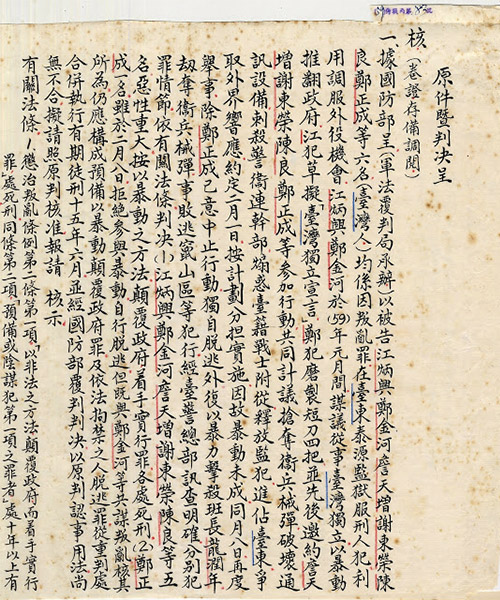 原件暨判決呈
核(卷證存備調閱)
一據國防部呈(軍法覆判局承辦)以被告江炳興鄭金河詹天增謝東榮陳
良鄭正成等六名(臺灣人)均係因叛亂罪在臺東泰源監獄服刑人犯利
用調服外役機會江炳興鄭金河於(59)年元月間謀議從事臺灣獨立以暴動
推翻政府江犯草擬「臺灣獨立宣言」鄭犯磨製短刀四把並先後邀約詹天
增謝東榮陳良鄭正成等參加行動共同計議搶奪衛兵械彈破壞通
訊設備刺殺警衛連幹部煽惑臺籍戰士附從釋放監犯進佔臺東爭
取外界響應約定二月一日按計劃分担實施因故暴動未成同月八日再度
舉事除鄭正成己意中止行動獨自脫逃外復以暴力擊殺班長龍潤年
劫奪衛兵械彈事敗逃竄山區等犯行經臺警總部訊查明確分別犯
罪情節依有關法條判決⑴江炳興鄭金河詹天增謝東榮陳良等五
名惡性重大按以暴動之方法顛覆政府着手實行罪各處死刑⑵鄭正
成一名雖於二月八日拒絕參與暴動自行脫逃但既與鄭金河等共謀叛亂核其
所為仍應構成預備以暴動顛覆政府罪及依法拘禁之人脫逃罪從重判處
合併執行有期徒刑十五年六月並經國防部覆判判決以原判認事用法尚
無不合擬請照原判核准報請 核示
有關法條 1.懲治叛亂條例第二條第一項「以非法之方法顛覆政府而着手實行
罪」處死刑同條第二項「預備或陰謀犯第一項之罪者」處十年以上有